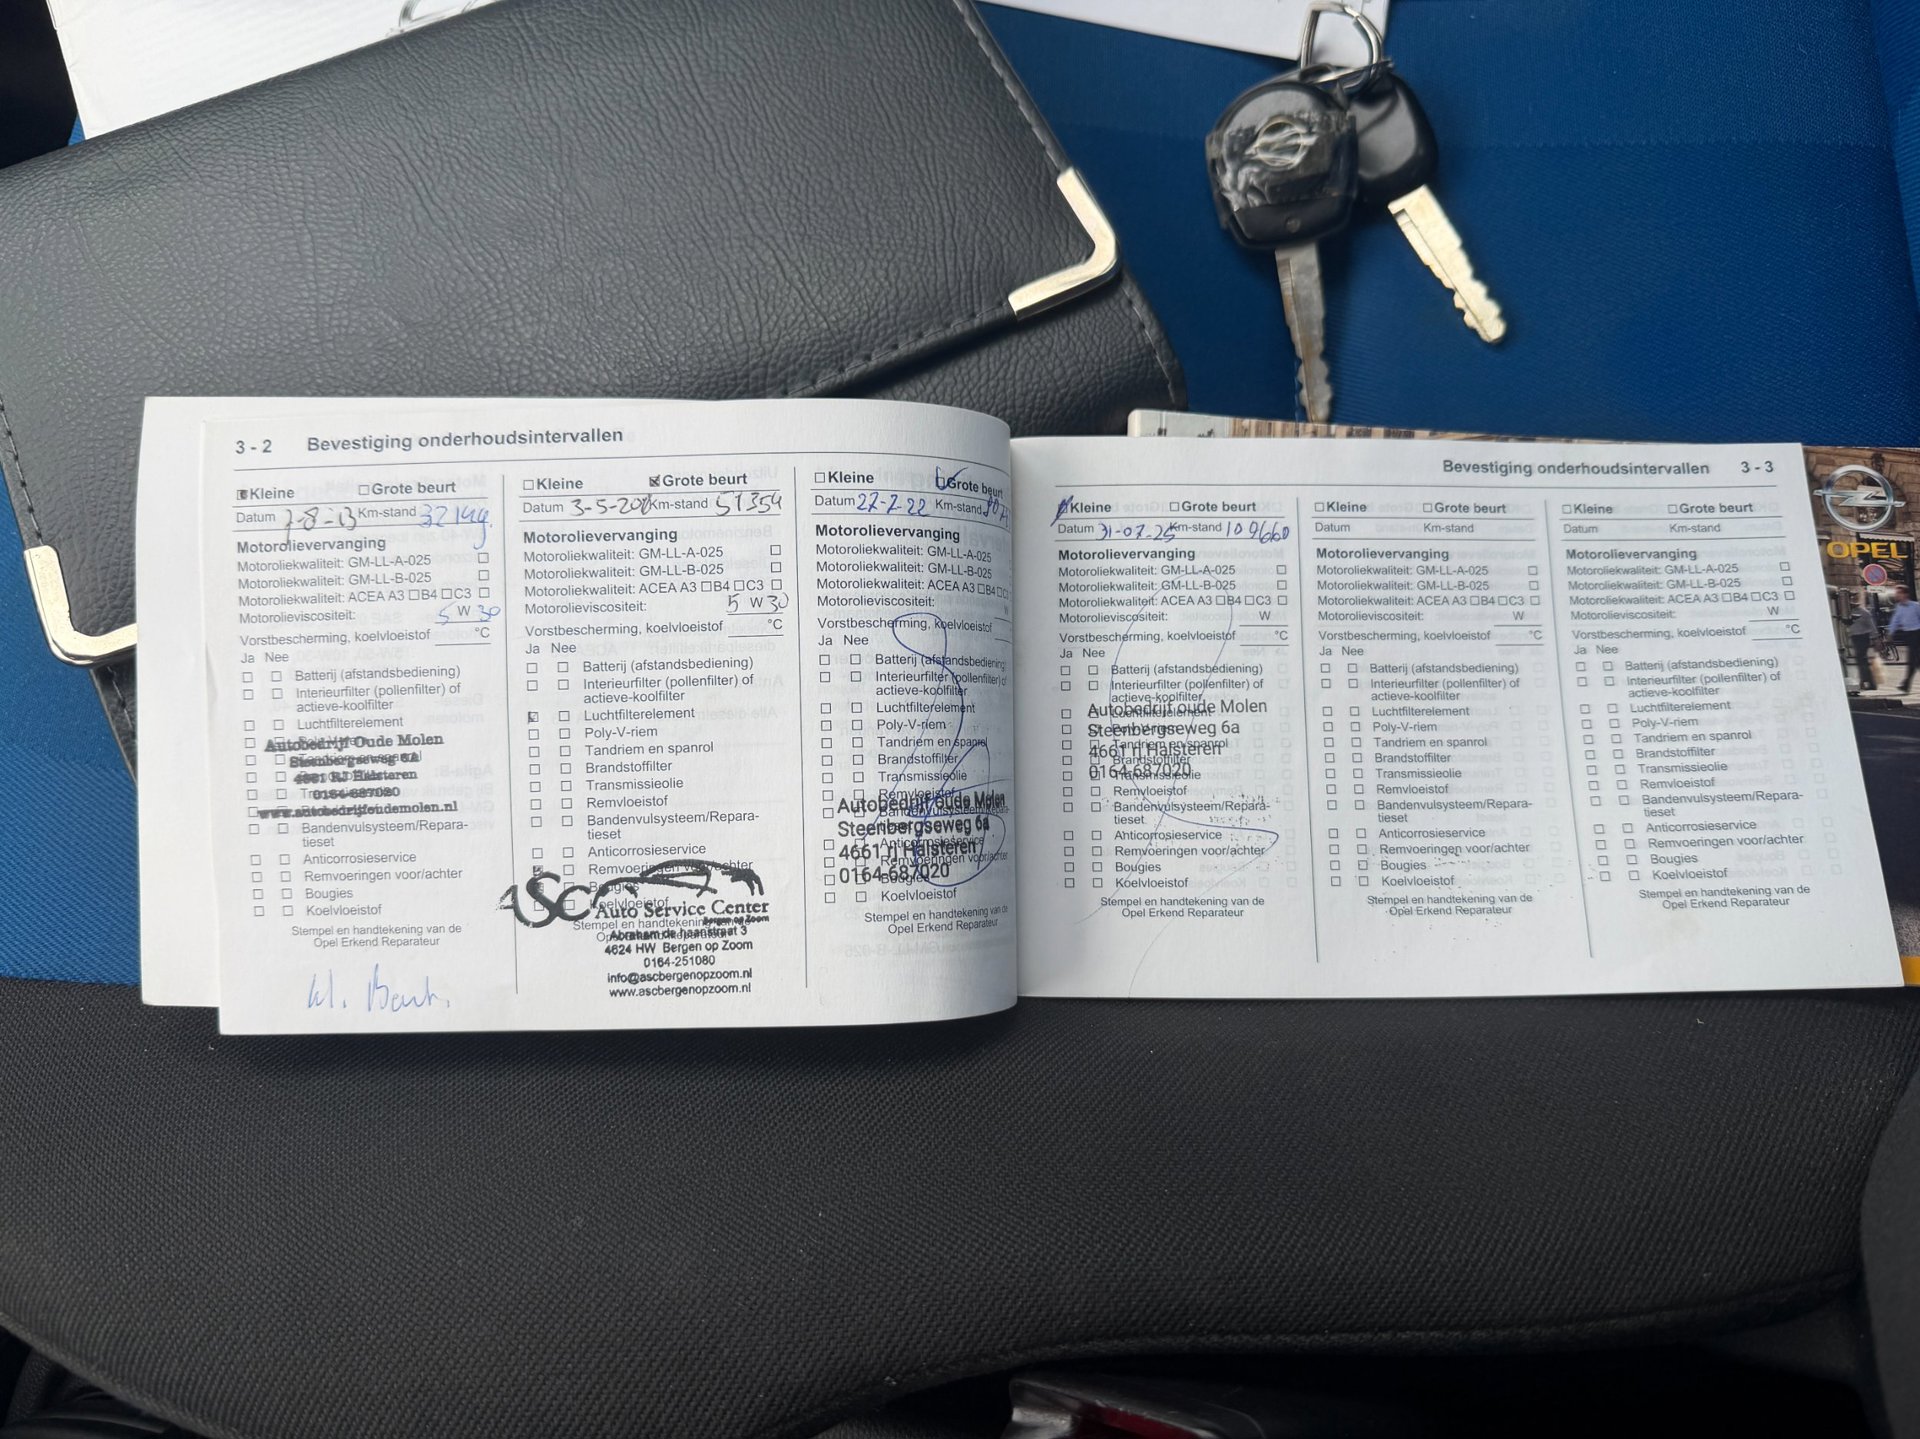 3 - 2 Bevestiging onderhoudsintervallen
Kleine Grote beurt
Datum 7-8-13 Km-stand
Motorolievervanging
Motoroliekwaliteit: GM-LL-A-025
Motoroliekwaliteit: GM-LL-B-025
Motoroliekwaliteit: ACEA A3 B4 C3
Motorolieviscositeit: 5 W 30
Vorstbescherming, koelvloeistof °C
Ja Nee
Batterij (afstandsbediening)
Interieurfilter (pollenfilter) of
actieve-koolfilter
Luchtfilterelement
Autobedrijf Oude Molen
Steenbergseweg 6A
4661 RJ Halsteren
0164-687020
www.autobedrijfoudemolen.nl
Bandenvulsysteem/Repara-
tieset
Anticorrosieservice
Remvoeringen voor/achter
Bougies
Koelvloeistof
Stempel en handtekening van de
Opel Erkend Reparateur
Kleine Grote beurt
Datum Km-stand 51354
Motorolievervanging
Motoroliekwaliteit: GM-LL-A-025
Motoroliekwaliteit: GM-LL-B-025
Motoroliekwaliteit: ACEA A3 B4 C3
Motorolieviscositeit: 5 W 30
Vorstbescherming, koelvloeistof °C
Ja Nee
Batterij (afstandsbediening)
Interieurfilter (pollenfilter) of
actieve-koolfilter
Luchtfilterelement
Poly-V-riem
Tandriem en spanrol
Brandstoffilter
Transmissieolie
Remvloeistof
Bandenvulsysteem/Repara-
tieset
Anticorrosieservice
Remvoeringen voor/achter
Bougies
Koelvloeistof
ASC Auto Service Center
Bergen op Zoom
Stempel en handtekening van de
Abraham de haanstraat 3
4624 HW Bergen op Zoom
0164-251080
info@ascbergenopzoom.nl
www.ascbergenopzoom.nl
Kleine Grote beurt
Datum 27-7-22 Km-stand
Motorolievervanging
Motoroliekwaliteit: GM-LL-A-025
Motoroliekwaliteit: GM-LL-B-025
Motoroliekwaliteit: ACEA A3 B4 C3
Motorolieviscositeit: W
Vorstbescherming, koelvloeistof
Ja Nee
Batterij (afstandsbediening)
Interieurfilter (pollenfilter) of
actieve-koolfilter
Luchtfilterelement
Poly-V-riem
Tandriem en spanrol
Brandstoffilter
Transmissieolie
Remvloeistof
Autobedrijf oude Molen
Steenbergseweg 6a
4661 rj Halsteren
Remvoeringen voor/achter
0164-687020
Bougies
Koelvloeistof
Stempel en handtekening van de
Opel Erkend Reparateur
Bevestiging onderhoudsintervallen 3 - 3
Kleine Grote beurt
Datum 31-07-25 Km-stand 109660
Motorolievervanging
Motoroliekwaliteit: GM-LL-A-025
Motoroliekwaliteit: GM-LL-B-025
Motoroliekwaliteit: ACEA A3 B4 C3
Motorolieviscositeit: W
Vorstbescherming, koelvloeistof °C
Ja Nee
Batterij (afstandsbediening)
Interieurfilter (pollenfilter) of
actieve-koolfilter
Luchtfilterelement
Autobedrijf oude Molen
Steenbergseweg 6a
Tandriem en spanrol
4661 rj Halsteren
Brandstoffilter
0164-687020
Transmissieolie
Remvloeistof
Bandenvulsysteem/Repara-
tieset
Anticorrosieservice
Remvoeringen voor/achter
Bougies
Koelvloeistof
Stempel en handtekening van de
Opel Erkend Reparateur
Kleine Grote beurt
Datum Km-stand
Motorolievervanging
Motoroliekwaliteit: GM-LL-A-025
Motoroliekwaliteit: GM-LL-B-025
Motoroliekwaliteit: ACEA A3 B4 C3
Motorolieviscositeit: W
Vorstbescherming, koelvloeistof °C
Ja Nee
Batterij (afstandsbediening)
Interieurfilter (pollenfilter) of
actieve-koolfilter
Luchtfilterelement
Poly-V-riem
Tandriem en spanrol
Brandstoffilter
Transmissieolie
Remvloeistof
Bandenvulsysteem/Repara-
tieset
Anticorrosieservice
Remvoeringen voor/achter
Bougies
Koelvloeistof
Stempel en handtekening van de
Opel Erkend Reparateur
Kleine Grote beurt
Datum Km-stand
Motorolievervanging
Motoroliekwaliteit: GM-LL-A-025
Motoroliekwaliteit: GM-LL-B-025
Motoroliekwaliteit: ACEA A3 B4 C3
Motorolieviscositeit: W
Vorstbescherming, koelvloeistof °C
Ja Nee
Batterij (afstandsbediening)
Interieurfilter (pollenfilter) of
actieve-koolfilter
Luchtfilterelement
Poly-V-riem
Tandriem en spanrol
Brandstoffilter
Transmissieolie
Remvloeistof
Bandenvulsysteem/Repara-
tieset
Anticorrosieservice
Remvoeringen voor/achter
Bougies
Koelvloeistof
Stempel en handtekening van de
Opel Erkend Reparateur
OPEL